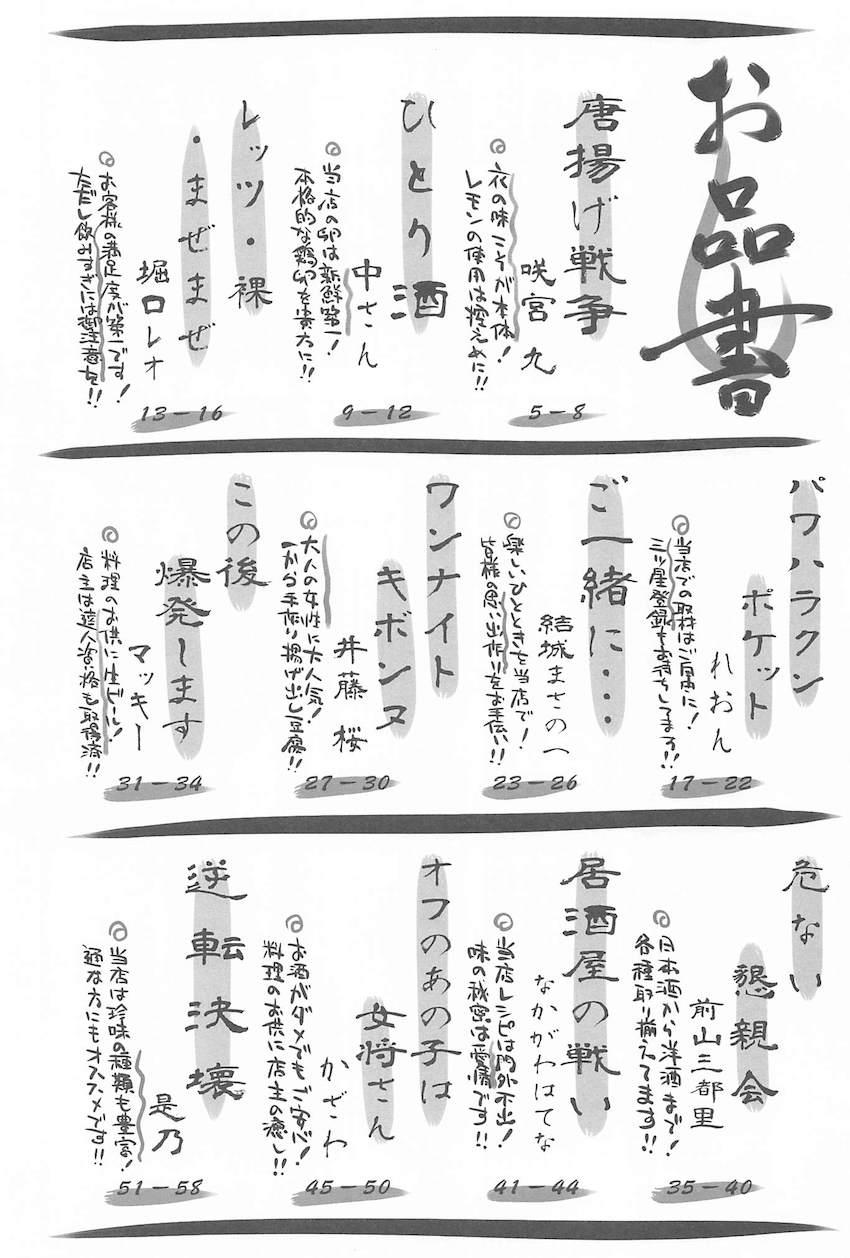 お品書
唐揚げ戦争
咲宮九
衣の味こそが本体!
レモンの使用は控えめに!!
5-8
ひとり酒
中さん
当店の卵は新鮮第一!
本格的な鶏卵を貴方に!!
9-12
レッツ・裸
・まぜまぜ
堀口レオ
お客様の満足度が第一です!
ただし飲みすぎには御注意を!!
13-16
パワハラクン
ポケット
れおん
当店での取材はご自由に!
三ツ星登録もお待ちしてまっす!!
17-22
ご一緒に・・・
結城まさのへ
楽しいひとときを当店で!
皆様の思い出作りをお手伝い!!
23-26
ワンナイト
キボンヌ
井藤桜
大人の女性に大人気!
一から手作り揚げ出し豆腐!!
27-30
この後
爆発します
マッキー
料理のお供に生ビール!
店主は達人資格も取得済!!
31-34
危ない
懇親会
前山三都里
日本酒から洋酒まで!
各種取り揃えてます!!
35-40
居酒屋の戦い
なかがわはてな
当店レシピは門外不出!
味の秘密は愛情です!!
41-44
オフのあの子は
女将さん
かざわ
お酒がダメでもご安心!
料理のお供に店主の癒し!!
45-50
逆転決壊
是乃
当店は珍味の種類も豊富!
通な方にもオススメです!!
51-58